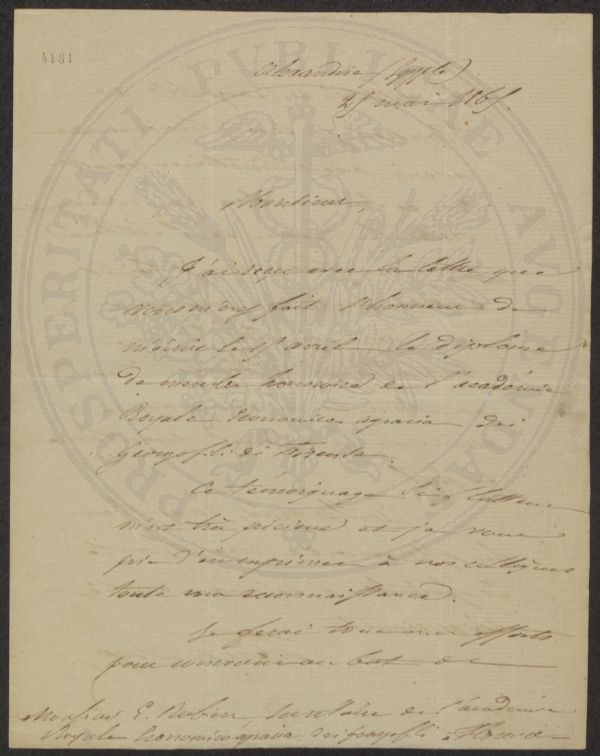 4181
PROSPERITATI PUBLICAE AUGENDAE
Alexandrie (Egypte)
25 mai 1865.
Monsieur,
J'ai reçu avec la lettre que
vous m'avez fait l'honneur de
m'écrire le 15 avril le diplome
de membre honoraire de l'académie
Royale economico-agraria dei
Georgofili di Firenze.
Ce témoignage si flatteur
m'est très précieux et je vous
prie d'en exprimer à nos collègues
toute ma reconnaissance.
Je ferai tous mes efforts
pour concourir au but de
Monsieur E. Rubieri, Secrétaire de l'académie
Royale Economico-agraria dei georgofili